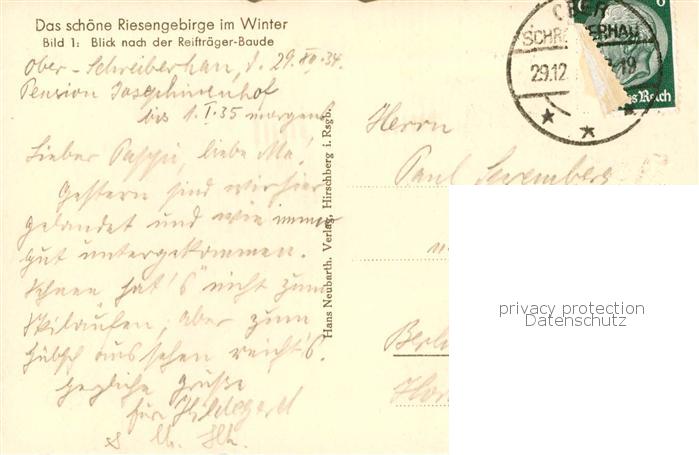 Das schöne Riesengebirge im Winter
Bild 1: Blick nach der Reifträger-Baude
Ober-Schreiberhau, d. 29. XII. 34.
Pension Josephinenhof
bis 1. I. 35 morgens
Lieber Pappi, liebe Ma!
Gestern sind wir hier
gelandet und wie immer
gut untergekommen.
Schnee "hat's" nicht zum
Skilaufen, aber zum
hübsch aussehen reicht's.
Herzliche Grüße
Hildegard
Hans Neubarth. Verlag, Hirschberg i. Rsgb.
OBER
SCHR ERHAU
29.12 19
6
es Reich
Herrn
Paul
Berl
privacy protection
Datenschutz